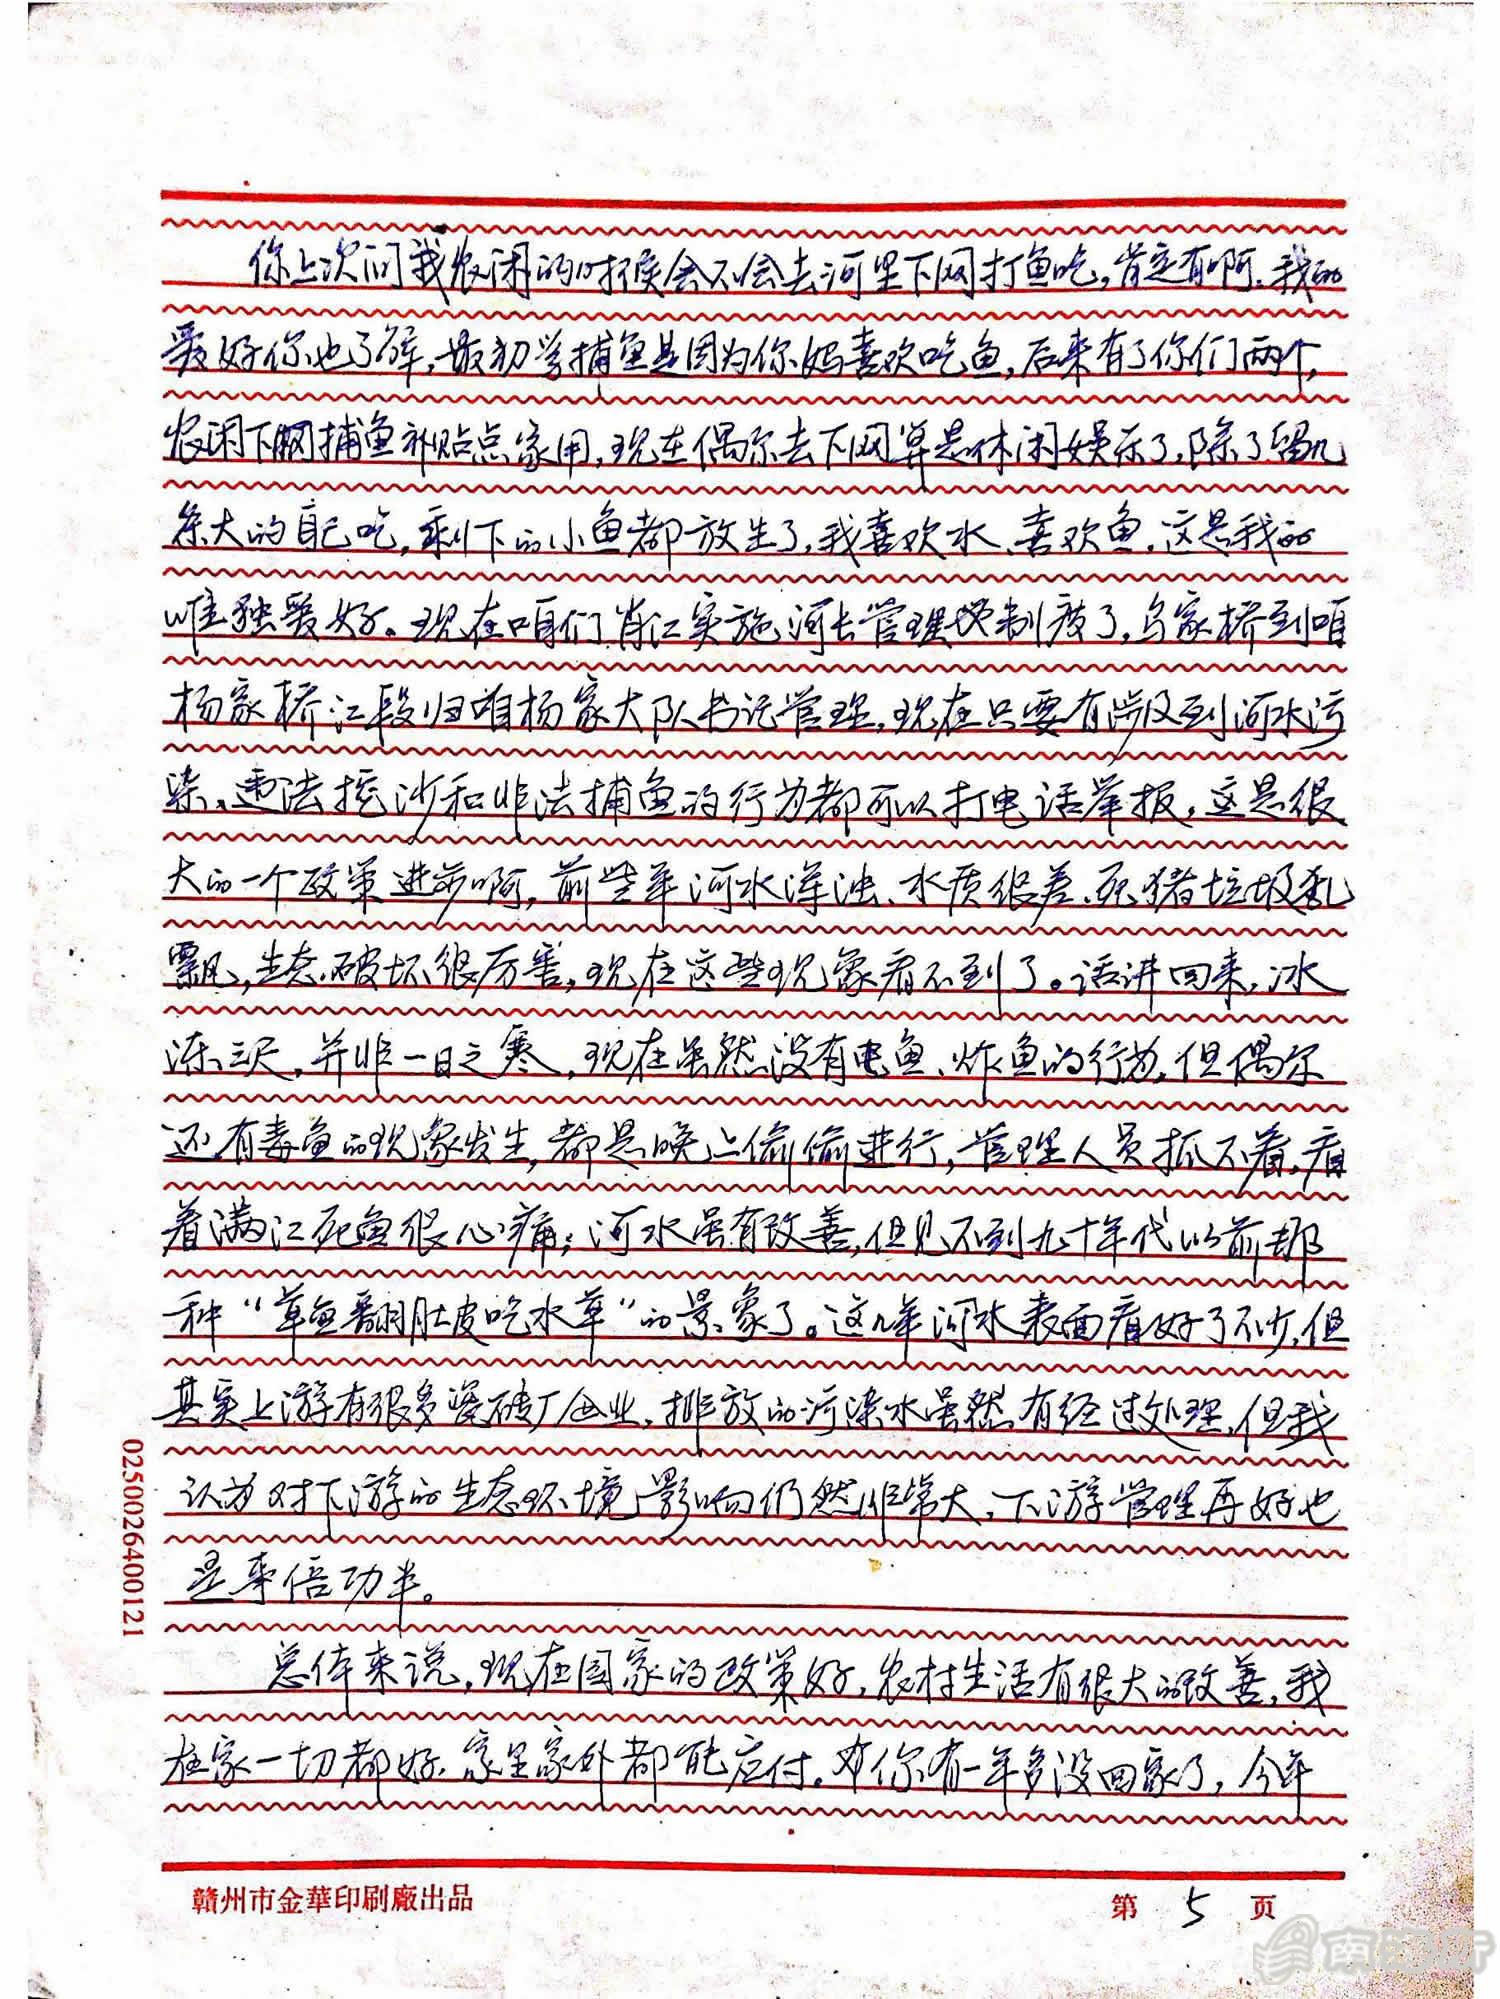 你上次问我农闲的时候会不会去河里下网打鱼吃，肯定有啊。我的
爱好你也了解，最初学捕鱼是因为你妈喜欢吃鱼，后来有了你们两个，
农闲下网捕鱼补贴点家用，现在偶尔去下网算是休闲娱乐了，除了留几
条大的自己吃，剩下的小鱼都放生了，我喜欢水、喜欢鱼，这是我的
唯独爱好。现在咱们肖江实施河长管理地制度了，乌家桥到咱
杨家桥江段归咱杨家大队书记管理，现在只要有涉及到河水污
染、违法挖沙和非法捕鱼的行为都可以打电话举报，这是很
大的一个政策进步啊，前些年河水浑浊、水质很差、死猪垃圾乱
飘，生态破坏很厉害，现在这些现象看不到了。话讲回来，冰
冻三尺，并非一日之寒，现在虽然没有电鱼、炸鱼的行为，但偶尔
还有毒鱼的现象发生，都是晚上偷偷进行，管理人员抓不着，看
着满江死鱼很心痛；河水虽有改善，但见不到九十年代以前那
种“草鱼翻肚皮吃水草”的景象了。这几年河水表面看好了不少，但
其实上游有很多瓷砖厂企业，排放的污染水虽然有经过处理，但我
认为对下游的生态环境影响仍然非常大，下游管理再好也
是事倍功半。
总体来说，现在国家的政策好，农村生活有很大的改善，我
在家一切都好，家里家外都能应付。你有一年多没回家了，今年
赣州市金華印刷廠出品
第 5 页
02500264001​21